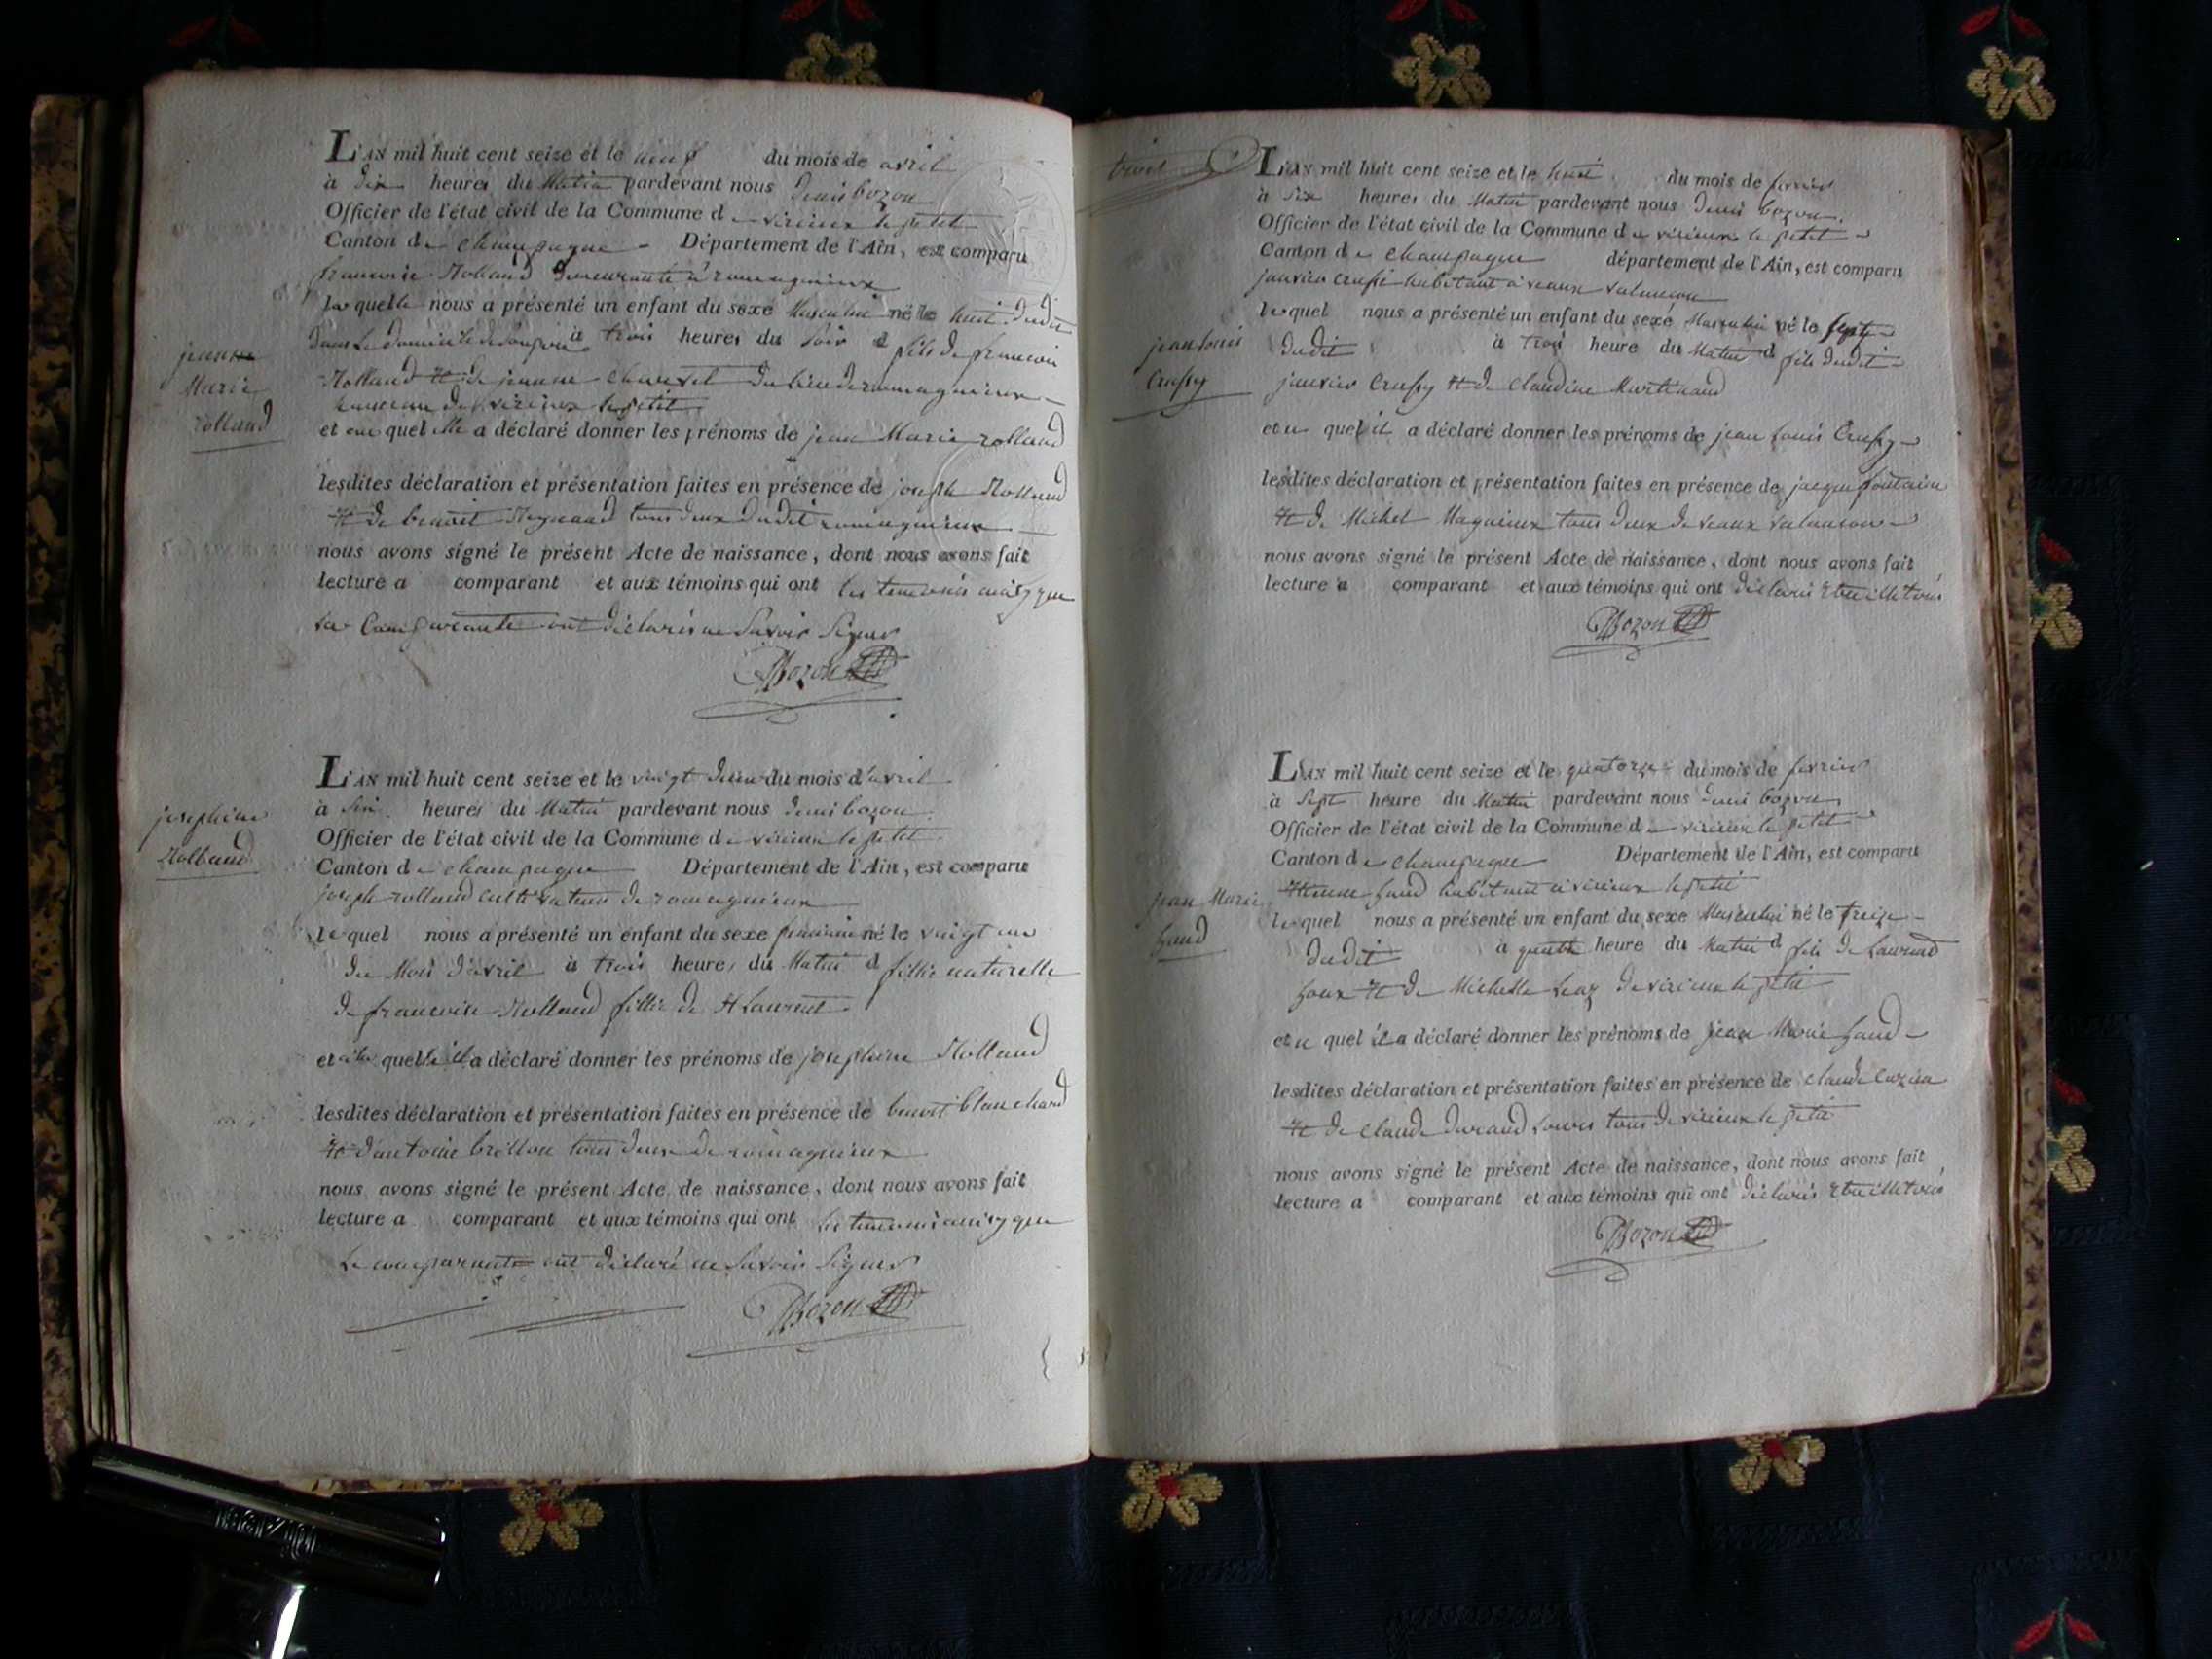 L'AN mil huit cent seize et le neuf du mois de avril
à dix heures du Matin pardevant nous denis bozon
Officier de l'état civil de la Commune de virieux le petit
Canton de champagne Département de l'Ain, est comparu
francoise Rolland demeurante a romagnieux
laquelle nous a présenté un enfant du sexe Masculin né le huit dudit
dans le domicile de son à trois heures du soir fils de francois
Rolland et de jeanne du lieu de romagnieux
hameau de virieux le petit
jean
Marie
rolland
et auquel elle a déclaré donner les prénoms de jean Marie rolland
lesdites déclaration et présentation faites en présence de joseph Rolland
et de benoit tous deux dudit romagnieux
nous avons signé le présent Acte de naissance, dont nous avons fait
lecture a comparant et aux témoins qui ont les temoins ainsy que
la comparante ont déclarés ne savoir signer
Bozon
L'AN mil huit cent seize et le vingt deux du mois d'avril
à six heures du Matin pardevant nous denis bozon
Officier de l'état civil de la Commune de virieux le petit
Canton de champagne Département de l'Ain, est comparu
joseph rolland cultivateur de romagnieux
josephine
Rolland
lequel nous a présenté un enfant du sexe feminin né le vingt un
du Mois d'avril à trois heures du Matin fille naturelle
de francoise Rolland fille de Laurent
et a laquelle il a déclaré donner les prénoms de josephine Rolland
lesdites déclaration et présentation faites en présence de benoit blanchard
et d'antoine brillon tous deux de romagnieux
nous avons signé le présent Acte de naissance, dont nous avons fait
lecture a comparant et aux témoins qui ont les temoins ainsy que
le comparant ont déclaré ne savoir signer
Bozon
L'AN mil huit cent seize et le huit du mois de fevrier
à six heures du Matin pardevant nous denis bozon
Officier de l'état civil de la Commune de virieux le petit
Canton de champagne département de l'Ain, est comparu
janvier habitant a
lequel nous a présenté un enfant du sexe Masculin né le sept
dudit à trois heure du Matin fils dudit
janvier et de Claudine Martinand
jean louis
et u quel il a déclaré donner les prénoms de jean louis
lesdites déclaration et présentation faites en présence de jacque fontaine
et de Michel tous deux de
nous avons signé le présent Acte de naissance, dont nous avons fait
lecture a comparant et aux témoins qui ont déclarés
Bozon
L'AN mil huit cent seize et le quatorze du mois de fevrier
à sept heure du Matin pardevant nous denis bozon
Officier de l'état civil de la Commune de virieux le petit
Canton de champagne Département de l'Ain, est comparu
habitant a virieux le petit
jean Marie
lequel nous a présenté un enfant du sexe Masculin né le treize
dudit à quatre heure du Matin fils de Laurent
et de Michelle de virieux le petit
et u quel il a déclaré donner les prénoms de jean Marie
lesdites déclaration et présentation faites en présence de claude
et de claude durand tous de virieux le petit
nous avons signé le présent Acte de naissance, dont nous avons fait
lecture a comparant et aux témoins qui ont déclarés
Bozon